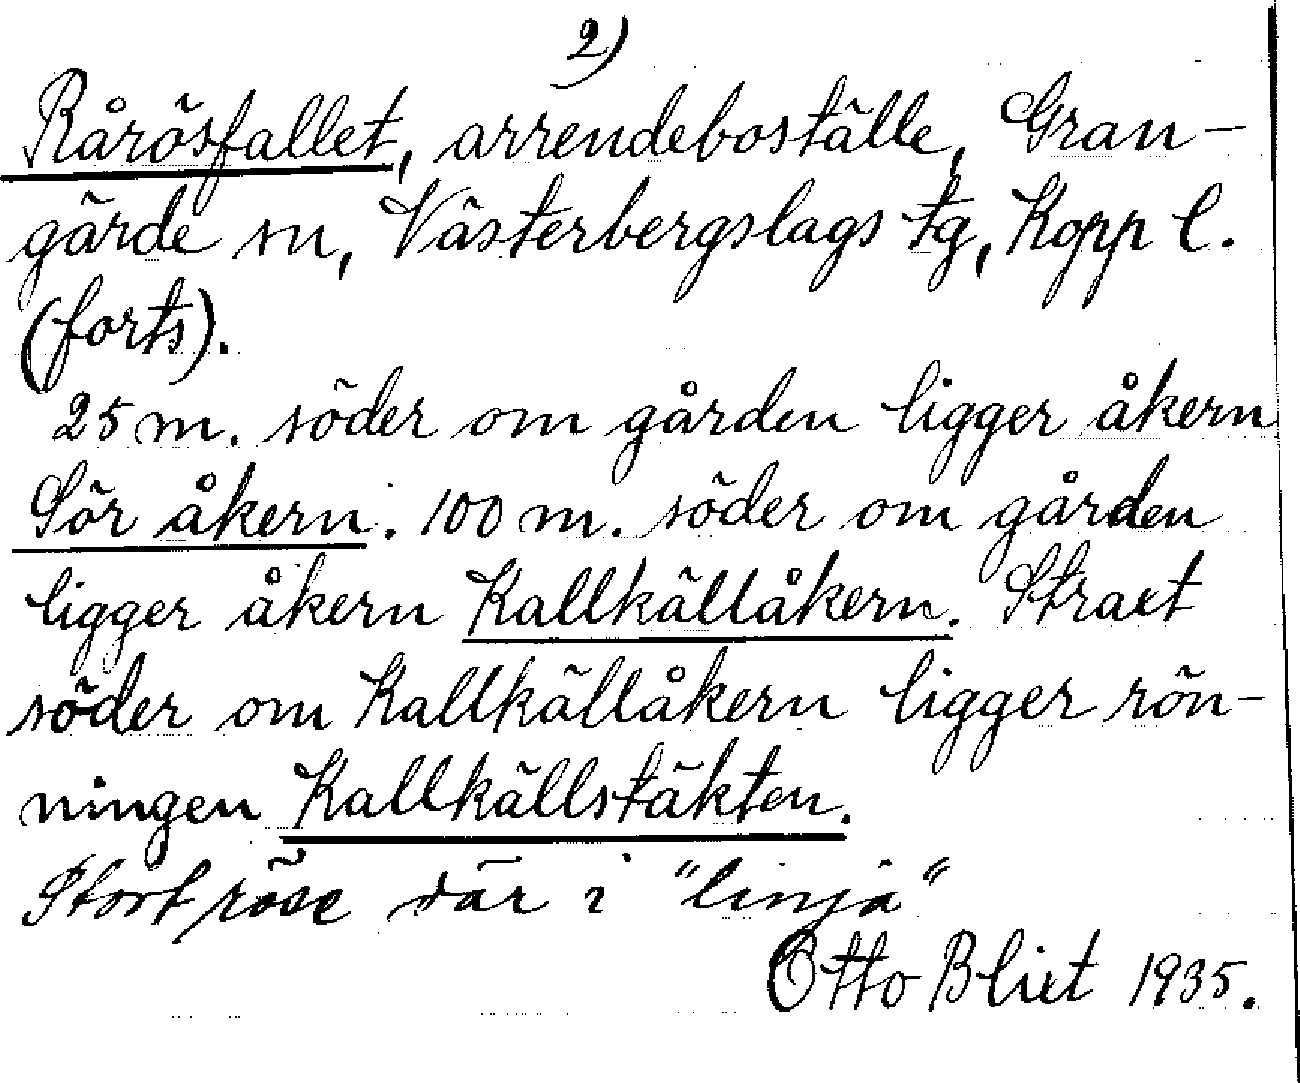 2)
Rårösfallet, arrendeboställe, Gran-
gärde sn, Västerbergslags tg, Kopp l.
(forts).
25 m. söder om gården ligger åkern
Sör åkern. 100 m. söder om gården
ligger åkern Kallkällåkern. Straxt
söder om Kallkällåkern ligger rön-
ningen Kallkällstäkten.
Stort röse där i "linja"
Otto Blixt 1935.